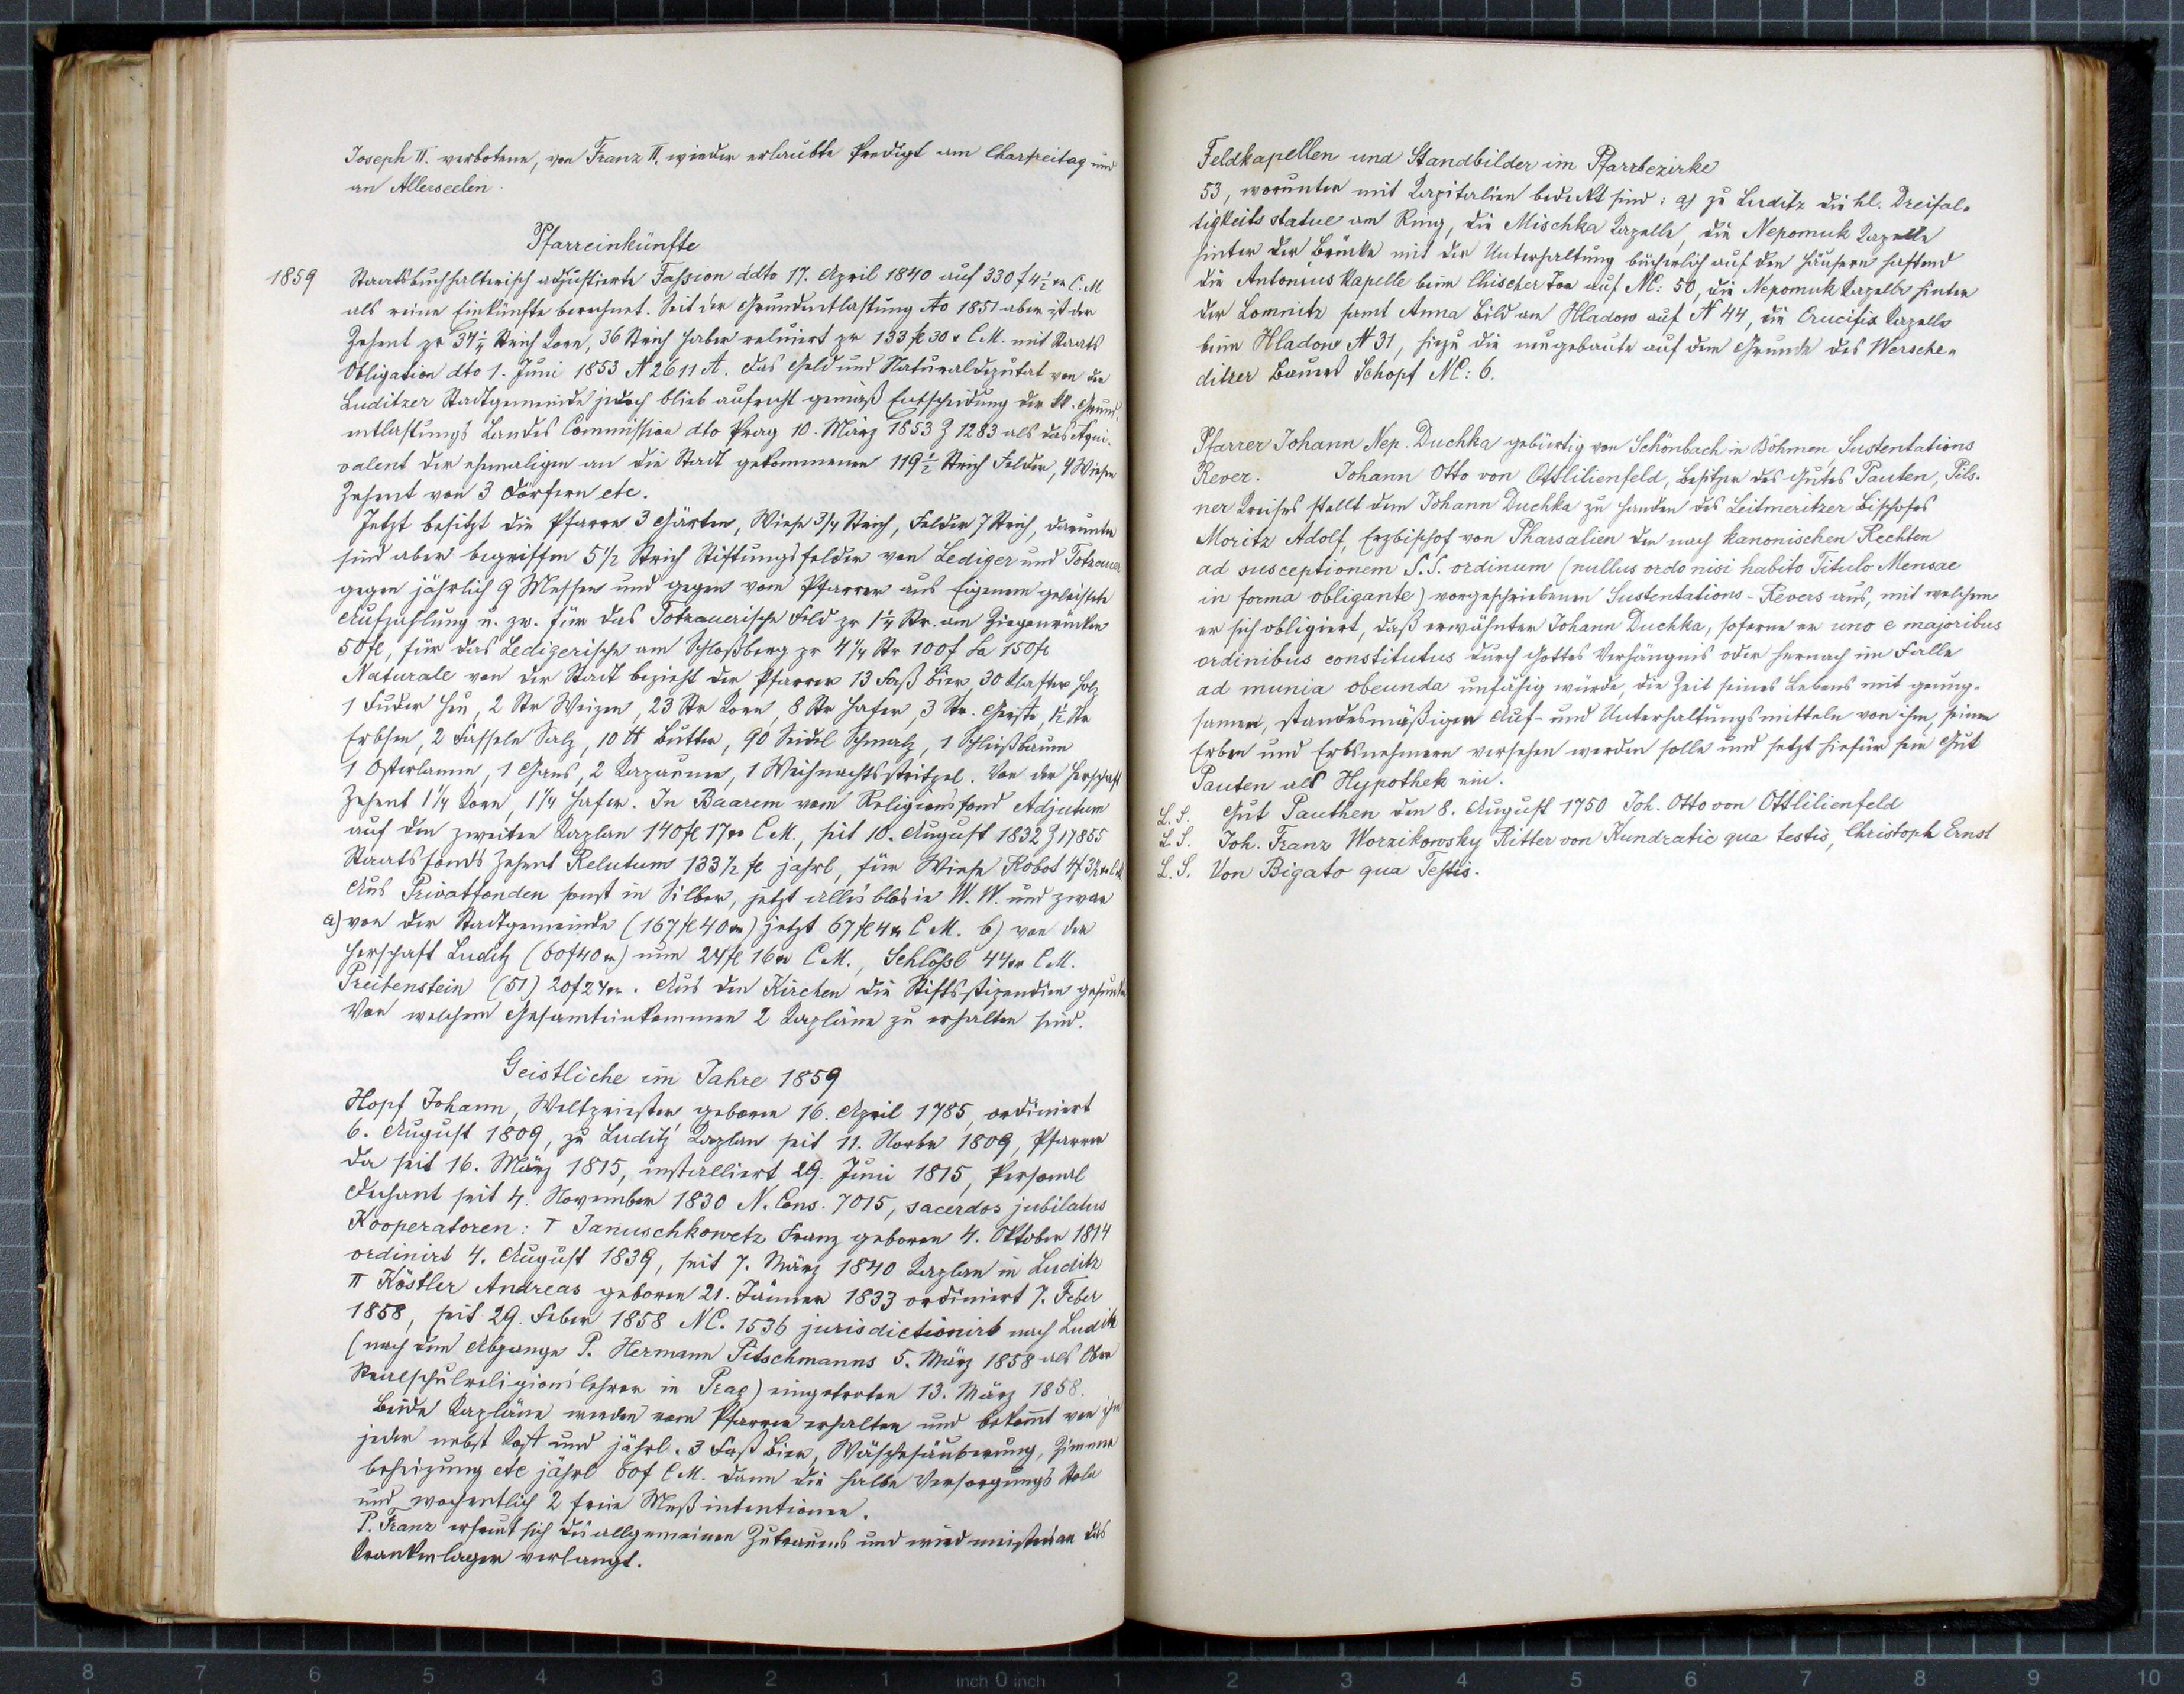 Joseph II. verbotene, von Franz II. wieder erlaubte Predigt am Charfreitag und
an Allerseelen.
Pfarreinkünfte
1859 Staatsbuchhalterisch adjustierte Fassion ddto 17. April 1840 auf 330 f 4 1/2 xr C.M
als reine Einkünfte berechnet. Seit der Grundentlastung Ao 1851 aber ist der
Zehent pr 34 1/4 Strich Korn, 36 Strich Haber reluiert pr 133 fl 30 x C.M. mit Staats
Obligation dto 1. Juni 1853 N 2611 A. Das Geld und Naturaldeputat von der
Luditzer Stadtgemeinde jedoch blieb aufrecht gemäß Entscheidung der Grund
entlastungs Landes Commission dto Prag 10. März 1853 Z 1283 als das Aequi-
valent der ehemaligen an die Stadt gekommenen 119 1/2 Strich Felder, 4 Wiesen
Zehent von 3 Dörfern etc.
Jetzt besitzt die Pfarre 3 Gärten, Wiese 3/4 Strich, Felder 7 Strich, darunter
sind aber begriffen 5 1/2 Strich Stiftungsfelder von Lediger und Totzauer
gegen jährlich 9 Messen und gegen vom Pfarrer aus Eigenem geleistete
Aufzahlung u. zw. für das Totzauerische Feld pr 1 1/4 Str. am Ziegenrücken
50 fl, für das Ledigerische am Schloßberg pr 4 1/4 Str 100 f Sa 150 fl
Naturale von der Stadt bezieht der Pfarrer 13 Faß Bier, 30 Klafter Holz
1 Fuder Heu, 2 Str Weizen, 23 Str Korn, 8 Str Hafer, 3 Str. Gerste, 1/2 Str
Erbsen, 2 Fasseln Salz, 10 ℔ Butter, 90 Seidel Schmalz, 1 Schießbaum
1 Osterlamm, 1 Gans, 2 Kapaune, 1 Weihnachtsstritzel. Von der Herschaft
Zehent 1 1/4 Korn, 1 1/4 Hafer. In Baarem vom Religionsfond Adjutum
auf den zweiten Kaplan 140 fl 17 xr C.M., seit 10. August 1832 Z 17855
Staatsfonds Zehent Relutum 133 1/2 fl jährl, für Wiese Robot 4 f
Aus Privatfonden sonst in Silber, jetzt alles blos in W.W. und zwar
a) von der Stadtgemeinde (167 fl 40 xr) jetzt 67 fl 4 xr C.M. b) von der
Herschaft Luditz (60 f 40 xr) nun 24 fl 16 xr C.M., Schlössl 44 xr C.M.
Preitenstein (51) 20 f 24 xr. Aus den Kirchen die Stiftsstipendien
Von welchem Gesamteinkommen 2 Kapläne zu erhalten sind.
Geistliche im Jahre 1859
Hopf Johann, Weltpriester geboren 16. April 1785, ordiniert
6. August 1809, zu Luditz Kaplan seit 11. Novbr 1809, Pfarrer
da seit 16. März 1815, installiert 29. Juni 1815, Personal
Dechant seit 4. November 1830 N. Cons. 7015, sacerdos jubilatus
Kooperatoren: I Januschkowetz Franz geboren 4. Oktober 1814
ordinirt 4. August 1839, seit 7. März 1840 Kaplan in Luditz
II Köstler Andreas geboren 21. Jänner 1833 ordiniert 7. Feber
1858, seit 29. Feber 1858 NC. 1536 jurisdictionirt nach Luditz
(nach dem Abgange P. Hermann Petschmanns 5. März 1858 als Ober
Realschulreligionslehrer in Prag) eingetreten 13. März 1858.
Beide Kapläne werden vom Pfarrer erhalten und bekommt von ihm
jeder nebst Kost und jährl. 3 Faß Bier, Wäschesäuberung, Zimmer
beheizung etc jährl 60 f C.M. dann die halbe Versorgungs Stola
und wochentlich 2 freie Meßintentionen.
P. Franz erfreut sich des allgemeinen Zutrauens und wird meistens an das
Krankenlager verlangt.
Feldkapellen und Standbilder im Pfarrbezirke
53, worunter mit Kapitalien bedeckt sind: a) zu Luditz die hl. Dreifal-
tigkeits statue am Ring, die Mischka Kapelle, die Nepomuk Kapelle
hinter der Brücke mit der Unterhaltung bücherlich auf den Häusern haftend
die Antonius Kapelle beim Chischer Tor auf NC: 50, die Nepomuk Kapelle hinter
der Lomnitz samt Anna Bild am Hladow auf N 44, die Crucifix Kapelle
beim Hladow N 31, hiezu die neugebaute auf dem Grunde des Wersche-
ditzer Bauers Schopf NC: 6.
Pfarrer Johann Nep. Duchka gebürtig von Schönbach in Böhmen, Sustentations
Rever. Johann Otto von Ottlilienfeld, Besitzer des Gutes Pauten, Pils-
ner Kreises stellt dem Johann Duchka zu Handen des Leitmeritzer Bischofes
Moritz Adolf, Erzbischof von Pharsalien den nach kanonischen Rechten
ad susceptionem S.S. ordinum (nullus ordo nisi habito Titulo Mensae
in forma obligante) vorgeschriebenen Sustentations-Revers aus, mit welchem
er sich obligiert, daß erwähnter Johann Duchka, soferne er uno e majoribus
ordinibus constitutus durch Gottes Verhängnis oder hernach im Falle
ad munia obeunda unfähig würde, die Zeit seines Lebens mit genug-
samen, standesmäßigen Auf- und Unterhaltungsmitteln von ihm, seinen
Erben und Erbsnehmern versehen werden solle und setzt hiefür sein Gut
Pauten als Hypothek ein.
L.S. Gut Pauthen den 8. August 1750 Joh. Otto von Ottlilienfeld
L.S. Joh. Franz Worzikowsky Ritter von Kundratic qua testis, Christoph Ernst
L.S. Von Bigato qua Testis.
8 7 6 5 4 3 2 1 inch 0 inch 1 2 3 4 5 6 7 8 9 10